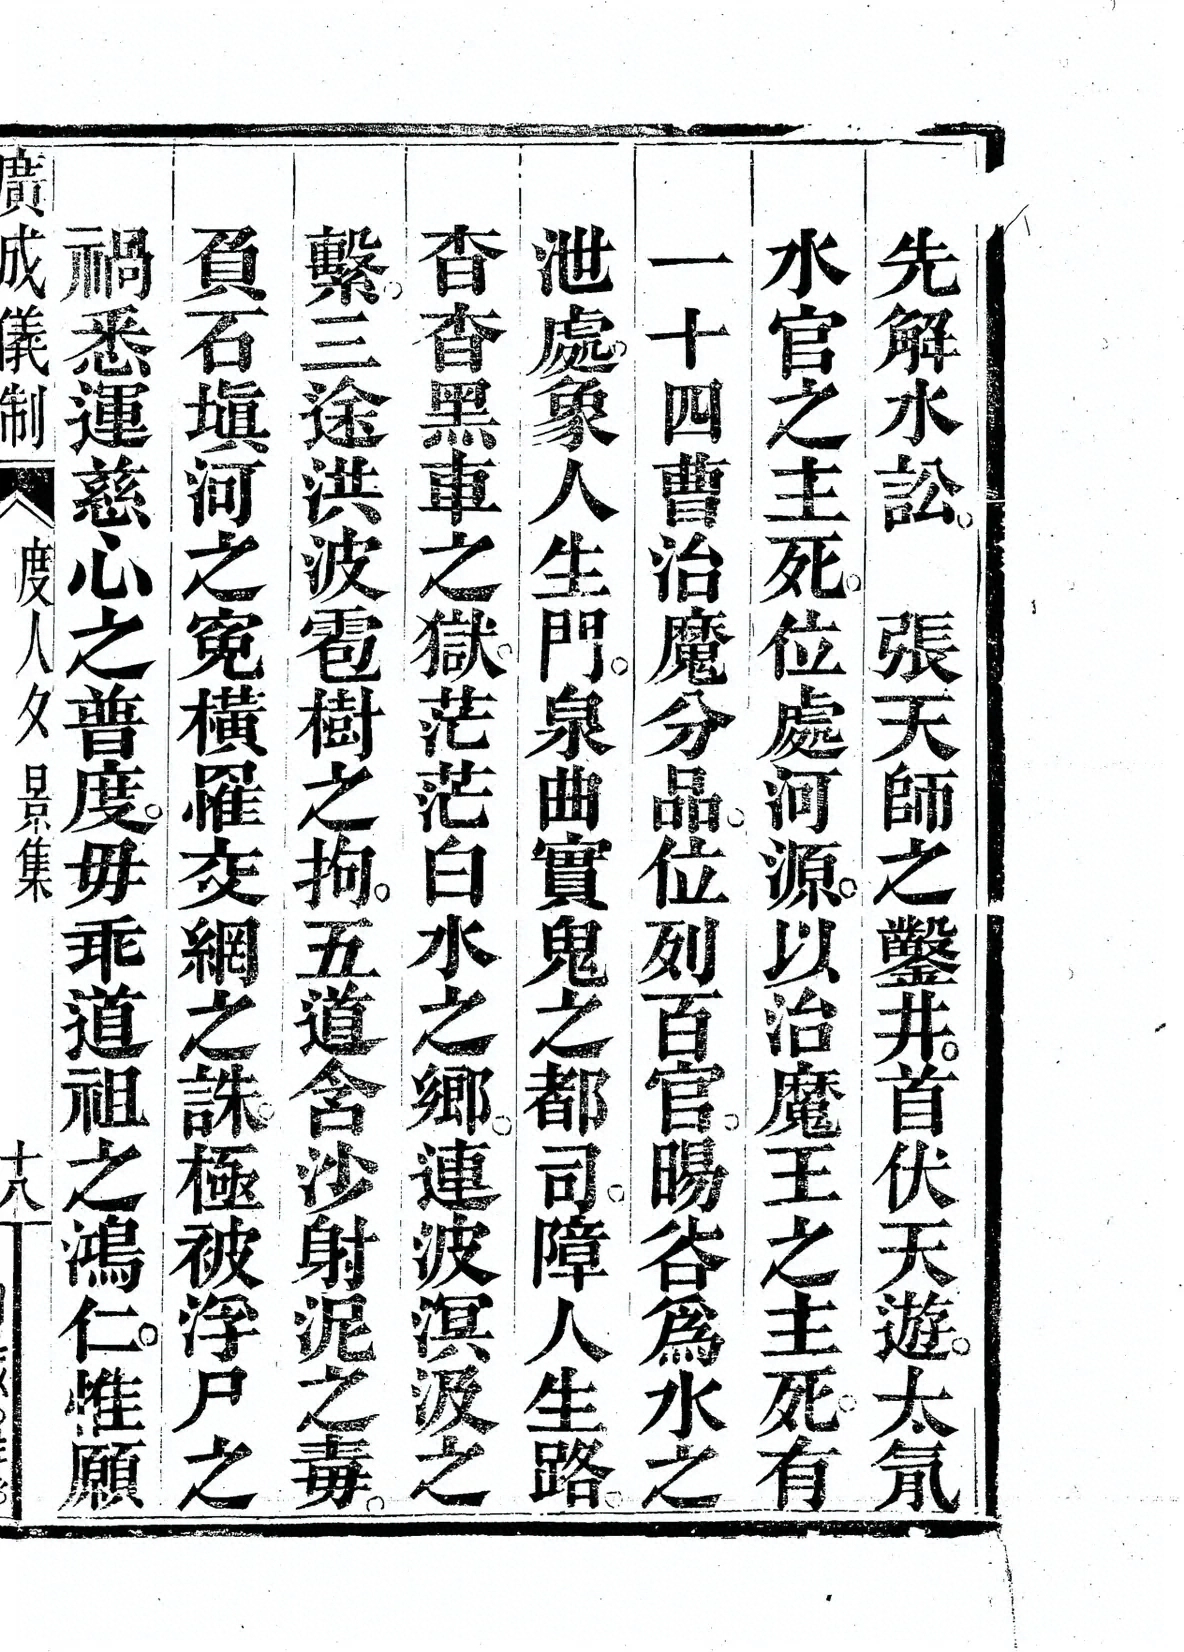 先解水訟。　張天師之鑿井。首伏天遊。太氘
水官之主死。位處河源。以治魔王之主死。有
一十四曹治魔分品。位列百官。暘谷為水之
泄處。象人生門。泉曲實鬼之都司。障人生路。
杳杳黑車之獄。茫茫白水之鄉。連波溟汲之
繫。三途洪波雹樹之拘。五道含沙射泥之毒。
負石塡河之寃橫罹交網之誅。極被浮尸之
禍悉運慈心之普度。毋乖道祖之鴻仁。惟願
廣成儀制　度人夕景集　十八